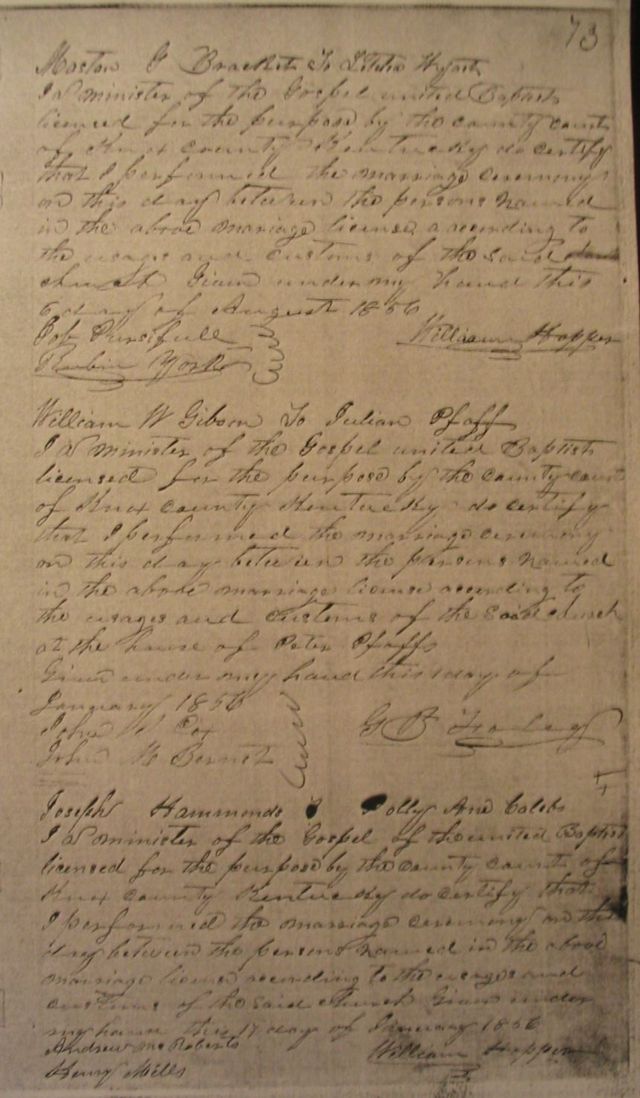 73
Maston G Brackett To Litha
I a minister of the Gospel united Baptist
licenced for the purpose by the county court
of Knox county Kentucky do certify
that I performed the marriage ceremony
on this day between the persons named
in the above marriage license according to
the usages and customs of the said
church Given under my hand this
6 day of August 1856
Job Pursifull William Hopper
Rubin York
William W Gibson To Julian Pfaff
I a minister of the Gospel united Baptist
licensed for the purpose by the county court
of Knox county Kentucky do certify
that I performed the marriage ceremony
on this day between the persons named
in the above marriage license according to
the usages and customs of the said church
at the house of Peter Pfaffs
Given under my hand this 1 day of
January 1856
John Cox G B Foley
John M Bernet
Joseph Hammonds Polly Ann Calebs
I a minister of the Gospel of the united Baptist
licensed for the purpose by the county court of
Knox county Kentucky do certify that
I performed the marriage ceremony on this
day between the persons named in the above
marriage license according to the usages and
customs of the said church Given under
my hand this 17 day of January 1856
Andrew McRoberts William Hopper
Henry Mills